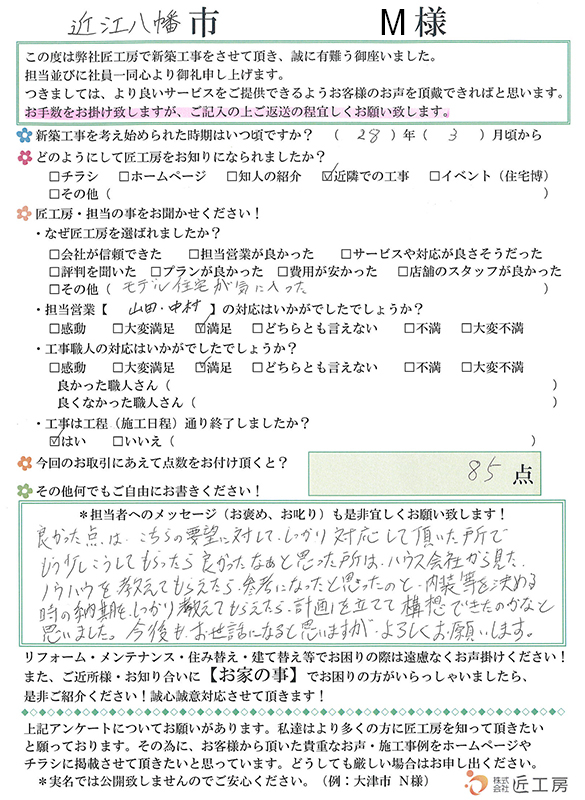 近江八幡市 M様
この度は弊社匠工房で新築工事をさせて頂き、誠に有難う御座いました。
担当並びに社員一同心より御礼申し上げます。
つきましては、より良いサービスをご提供できるようお客様のお声を頂戴できればと思います。
お手数をお掛け致しますが、ご記入の上ご返送の程宜しくお願い致します。
新築工事を考え始められた時期はいつ頃ですか？ （ 28 ）年（ 3 ）月頃から
どのようにして匠工房をお知りになられましたか？
□チラシ □ホームページ □知人の紹介 ☑近隣での工事 □イベント（住宅博）
□その他（ ）
匠工房・担当の事をお聞かせください！
・なぜ匠工房を選ばれましたか？
□会社が信頼できた □担当営業が良かった □サービスや対応が良さそうだった
□評判を聞いた □プランが良かった □費用が安かった □店舗のスタッフが良かった
□その他（ モデル住宅が気に入った ）
・担当営業【 山田・中村 】の対応はいかがでしたでしょうか？
□感動 □大変満足 ☑満足 □どちらとも言えない □不満 □大変不満
・工事職人の対応はいかがでしたでしょうか？
□感動 □大変満足 ☑満足 □どちらとも言えない □不満 □大変不満
良かった職人さん（ ）
良くなかった職人さん（ ）
・工事は工程（施工日程）通り終了しましたか？
☑はい □いいえ（ ）
今回のお取引にあえて点数をお付け頂くと？ 85 点
その他何でもご自由にお書きください！
＊担当者へのメッセージ（お褒め、お叱り）も是非宜しくお願い致します！
良かった点は、こちらの要望に対して、しっかり対応して頂いた所で
もう少しこうしてもらったら良かったなぁと思った所は、ハウス会社から見た、
ノウハウを教えてもらえたら、参考になったと思ったのと、内装等を決める
時の納期を、しっかり教えてもらえたら、計画を立てて構想できたのかなと
思いました。今後も、お世話になると思いますが、よろしくお願いします。
リフォーム・メンテナンス・住み替え・建て替え等でお困りの際は遠慮なくお声掛けください！
また、ご近所様・お知り合いに【お家の事】でお困りの方がいらっしゃいましたら、
是非ご紹介ください！誠心誠意対応させて頂きます！
上記アンケートについてお願いがあります。私達はより多くの方に匠工房を知って頂きたい
と願っております。その為に、お客様から頂いた貴重なお声・施工事例をホームページや
チラシに掲載させて頂きたいと思っています。どうしても厳しい場合はお申し出ください。
＊実名では公開致しませんのでご安心ください。（例：大津市 N様） 株式会社 匠工房